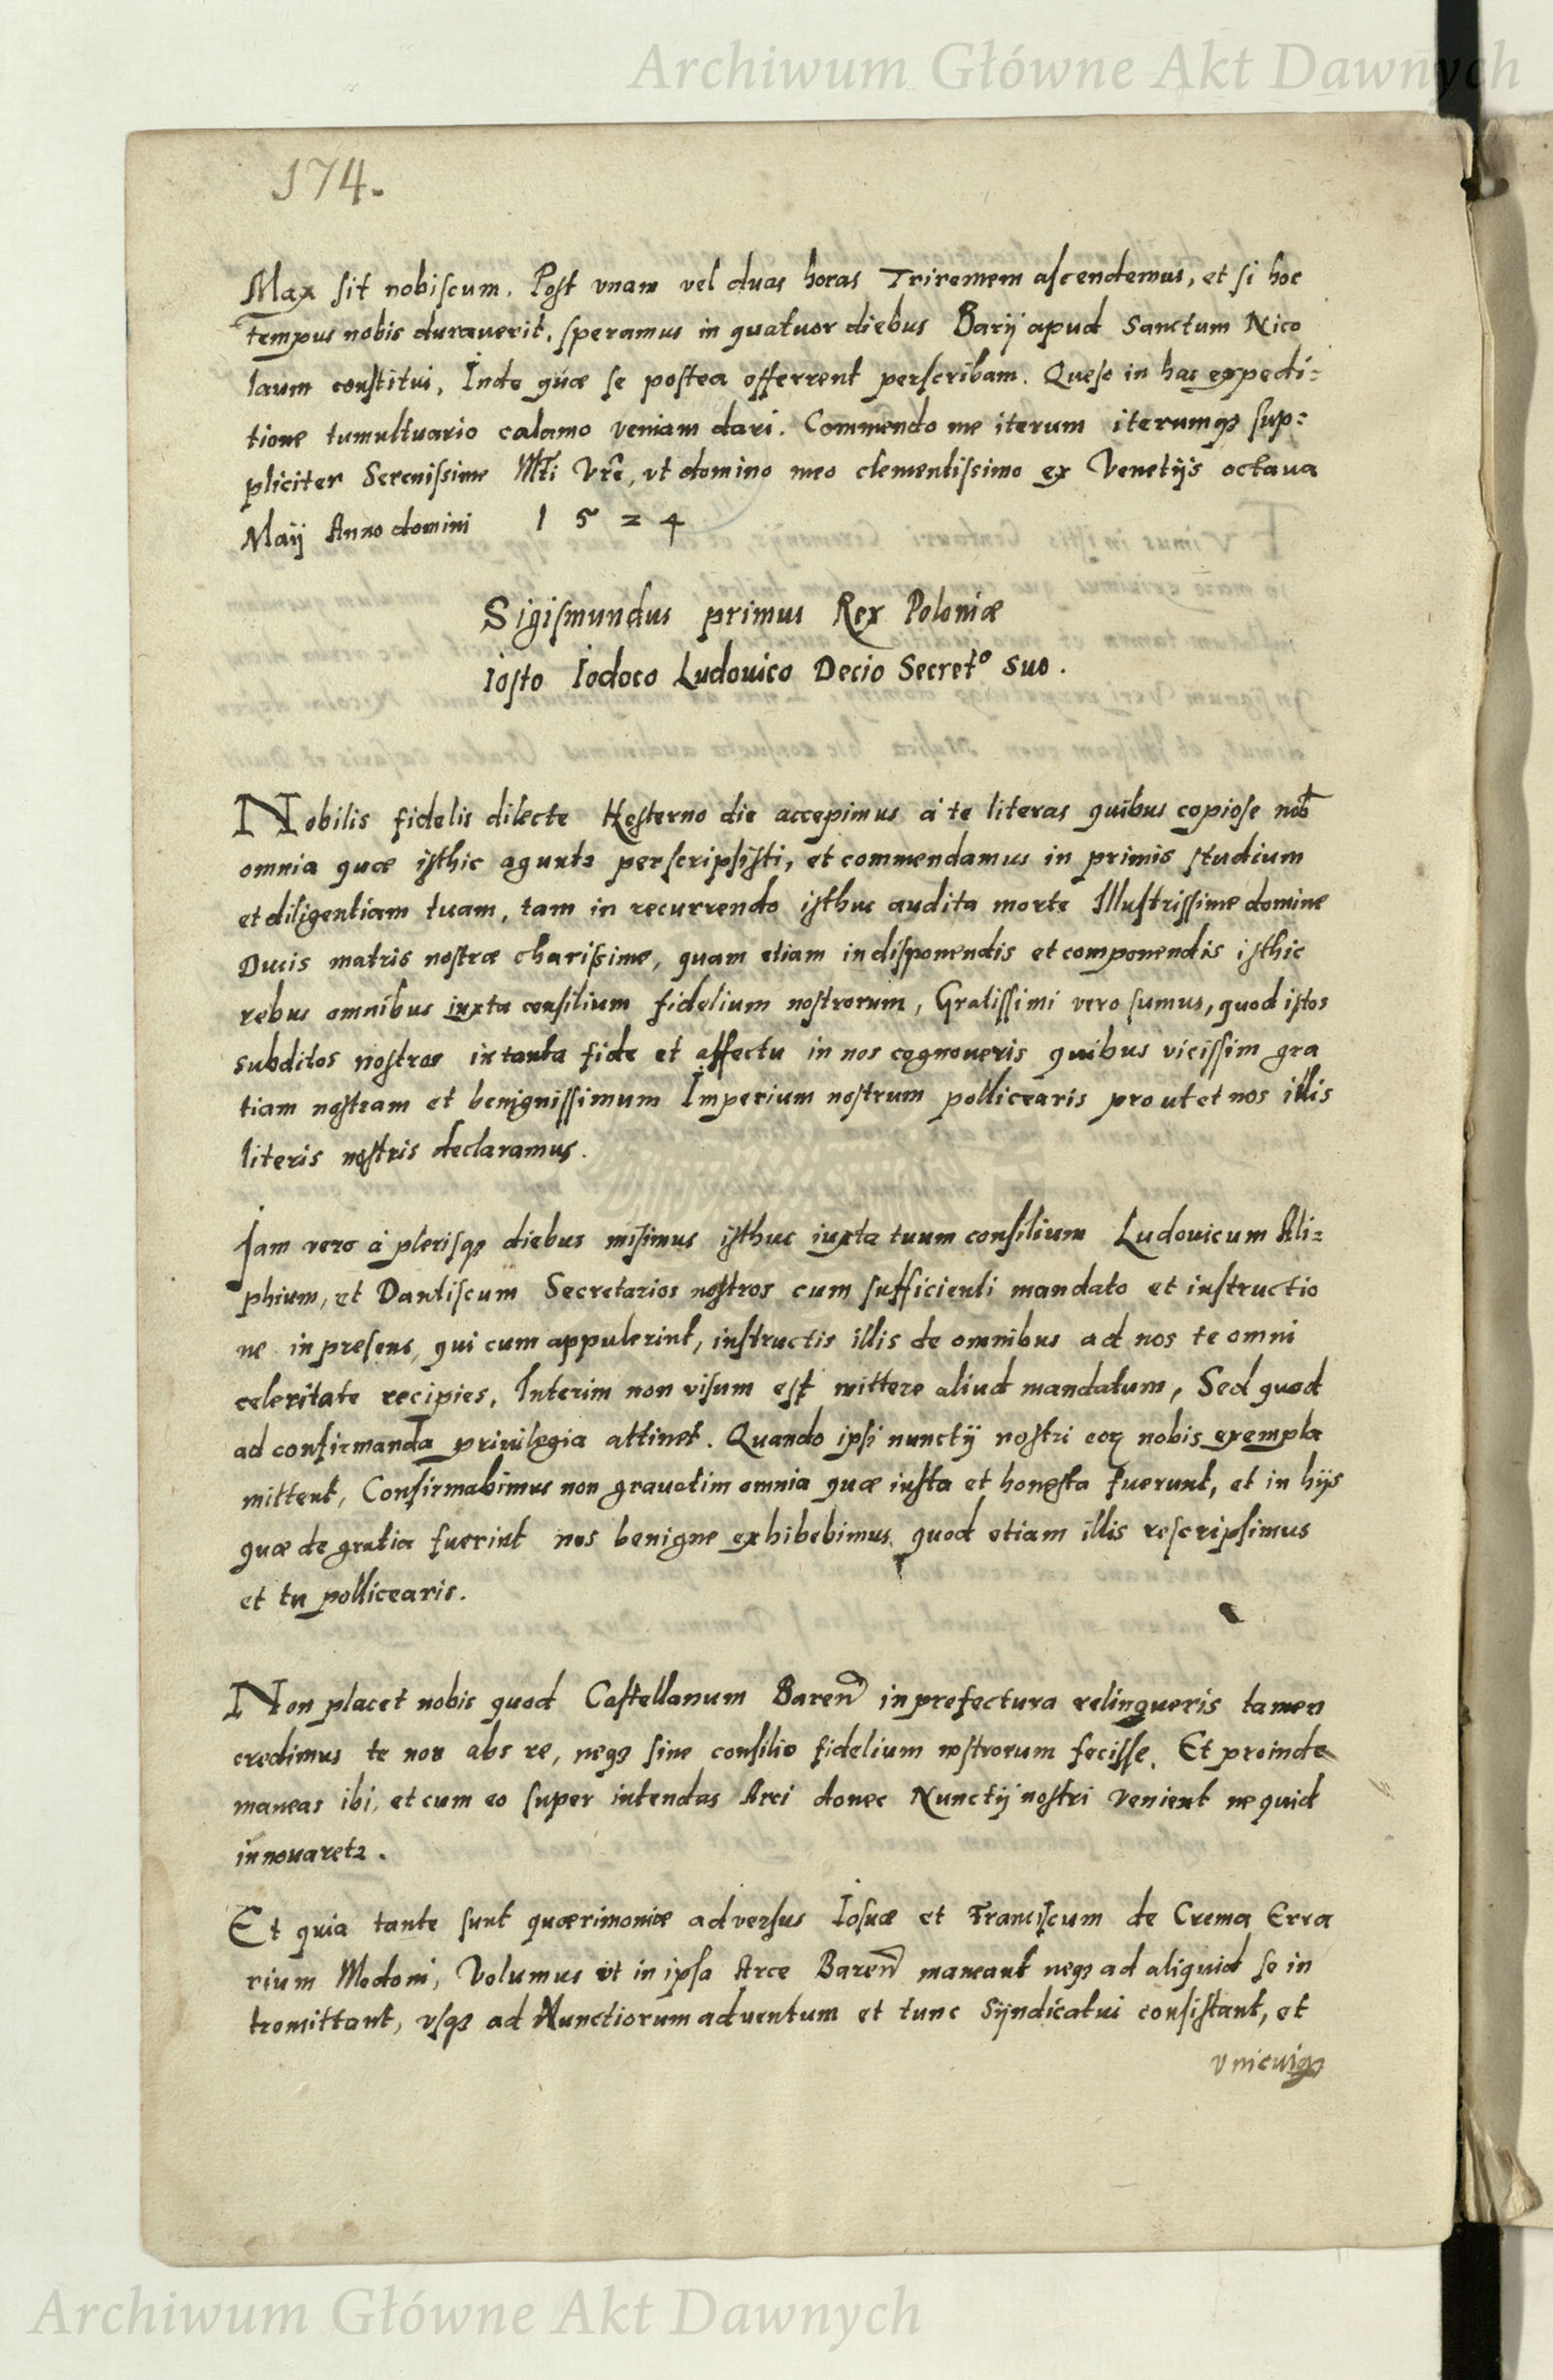 Archiwum Główne Akt Dawnych
174.
Max sit nobiscum. Post vnam vel duas horas Triremem ascendemus, et si hoc
tempus nobis durauerit, speramus in quatuor diebus Barij apud Sanctum Nico
laum constitui, Inde quæ se postea offerrent perscribam. Queso in hac expedi=
tione tumultuario calamo veniam dari. Commendo me iterum iterumqȝ sup=
pliciter Serenissime Mti Vre, vt domino meo clementissimo ex Venetijs octaua
Maij Anno domini 1 5 2 4
Sigismundus primus Rex Poloniæ
Iosto Iodoco Ludouico Decio Secreto suo.
Nobilis fidelis dilecte Hesterno die accepimus à te literas quibus copiose nob
omnia quæ isthic aguntr perscripsisti, et commendamus in primis studium
et diligentiam tuam, tam in recurrendo isthuc audita morte Illustrissime domine
Ducis matris nostræ charissime, quam etiam in disponendis et componendis isthic
rebus omnibus iuxta consilium fidelium nostrorum, Gratissimi vero sumus, quod istos
subditos nostros in tanta fide et affectu in nos cognoueris quibus vicissim gra
tiam nostram et benignissimum Imperium nostrum pollicearis pro ut et nos illis
literis nostris declaramus.
Iam vero à plerisqȝ diebus misimus isthuc iuxta tuum consilium Ludouicum Ali=
phium, et Dantiscum Secretarios nostros cum sufficienti mandato et instructio
ne in presens, qui cum appulerint, instructis illis de omnibus ad nos te omni
celeritate recipies, Interim non visum est mittere aliud mandatum, Sed quod
ad confirmanda priuilegia attinet. Quando ipsi nunctij nostri eoꝝ nobis exempla
mittent, Confirmabimus non grauatim omnia quæ iusta et honesta fuerunt, et in hijs
quæ de gratia fuerint nos benigne exhibebimus, quod etiam illis rescripsimus
et tu pollicearis.
Non placet nobis quod Castellanum Baren in prefectura relinqueris tamen
credimus te non abs re, neqȝ sine consilio fidelium nostrorum fecisse. Et proinde
maneas ibi, et cum eo super intendas Arci donec Nunctij nostri venient ne quid
innouaretr.
Et quia tante sunt quærimoniæ adversus Iosuæ et Franciscum de Crema Erra
rium Modoni, Volumus vt in ipsa Arce Baren maneant neqȝ ad aliquid se in
tromittant, vsqȝ ad Nunctiorum aduentum et tunc Sijndicatui consistant, et
vnicuiqȝ
Archiwum Główne Akt Dawnych